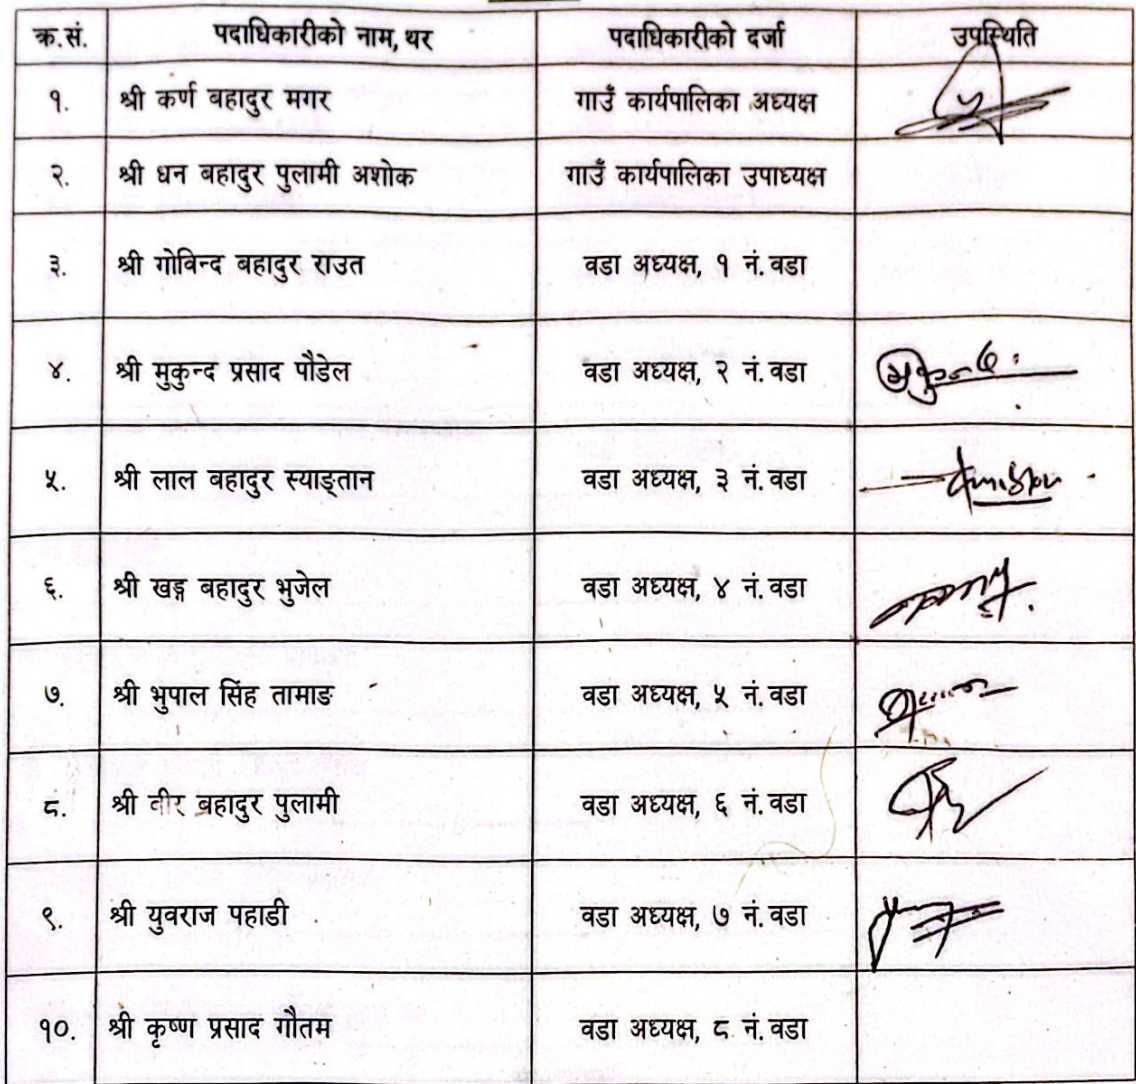 क्र.सं. पदाधिकारीको नाम, थर पदाधिकारीको दर्जा उपस्थिति
१. श्री कर्ण बहादुर मगर गाउँ कार्यपालिका अध्यक्ष
२. श्री धन बहादुर पुलामी अशोक गाउँ कार्यपालिका उपाध्यक्ष
३. श्री गोविन्द बहादुर राउत वडा अध्यक्ष, १ नं. वडा
४. श्री मुकुन्द प्रसाद पौडेल वडा अध्यक्ष, २ नं. वडा
५. श्री लाल बहादुर स्याङ्तान वडा अध्यक्ष, ३ नं. वडा
६. श्री खड्ग बहादुर भुजेल वडा अध्यक्ष, ४ नं. वडा
७. श्री भुपाल सिंह तामाङ वडा अध्यक्ष, ५ नं. वडा
८. श्री वीर बहादुर पुलामी वडा अध्यक्ष, ६ नं. वडा
९. श्री युवराज पहाडी वडा अध्यक्ष, ७ नं. वडा
१०. श्री कृष्ण प्रसाद गौतम वडा अध्यक्ष, ८ नं. वडा